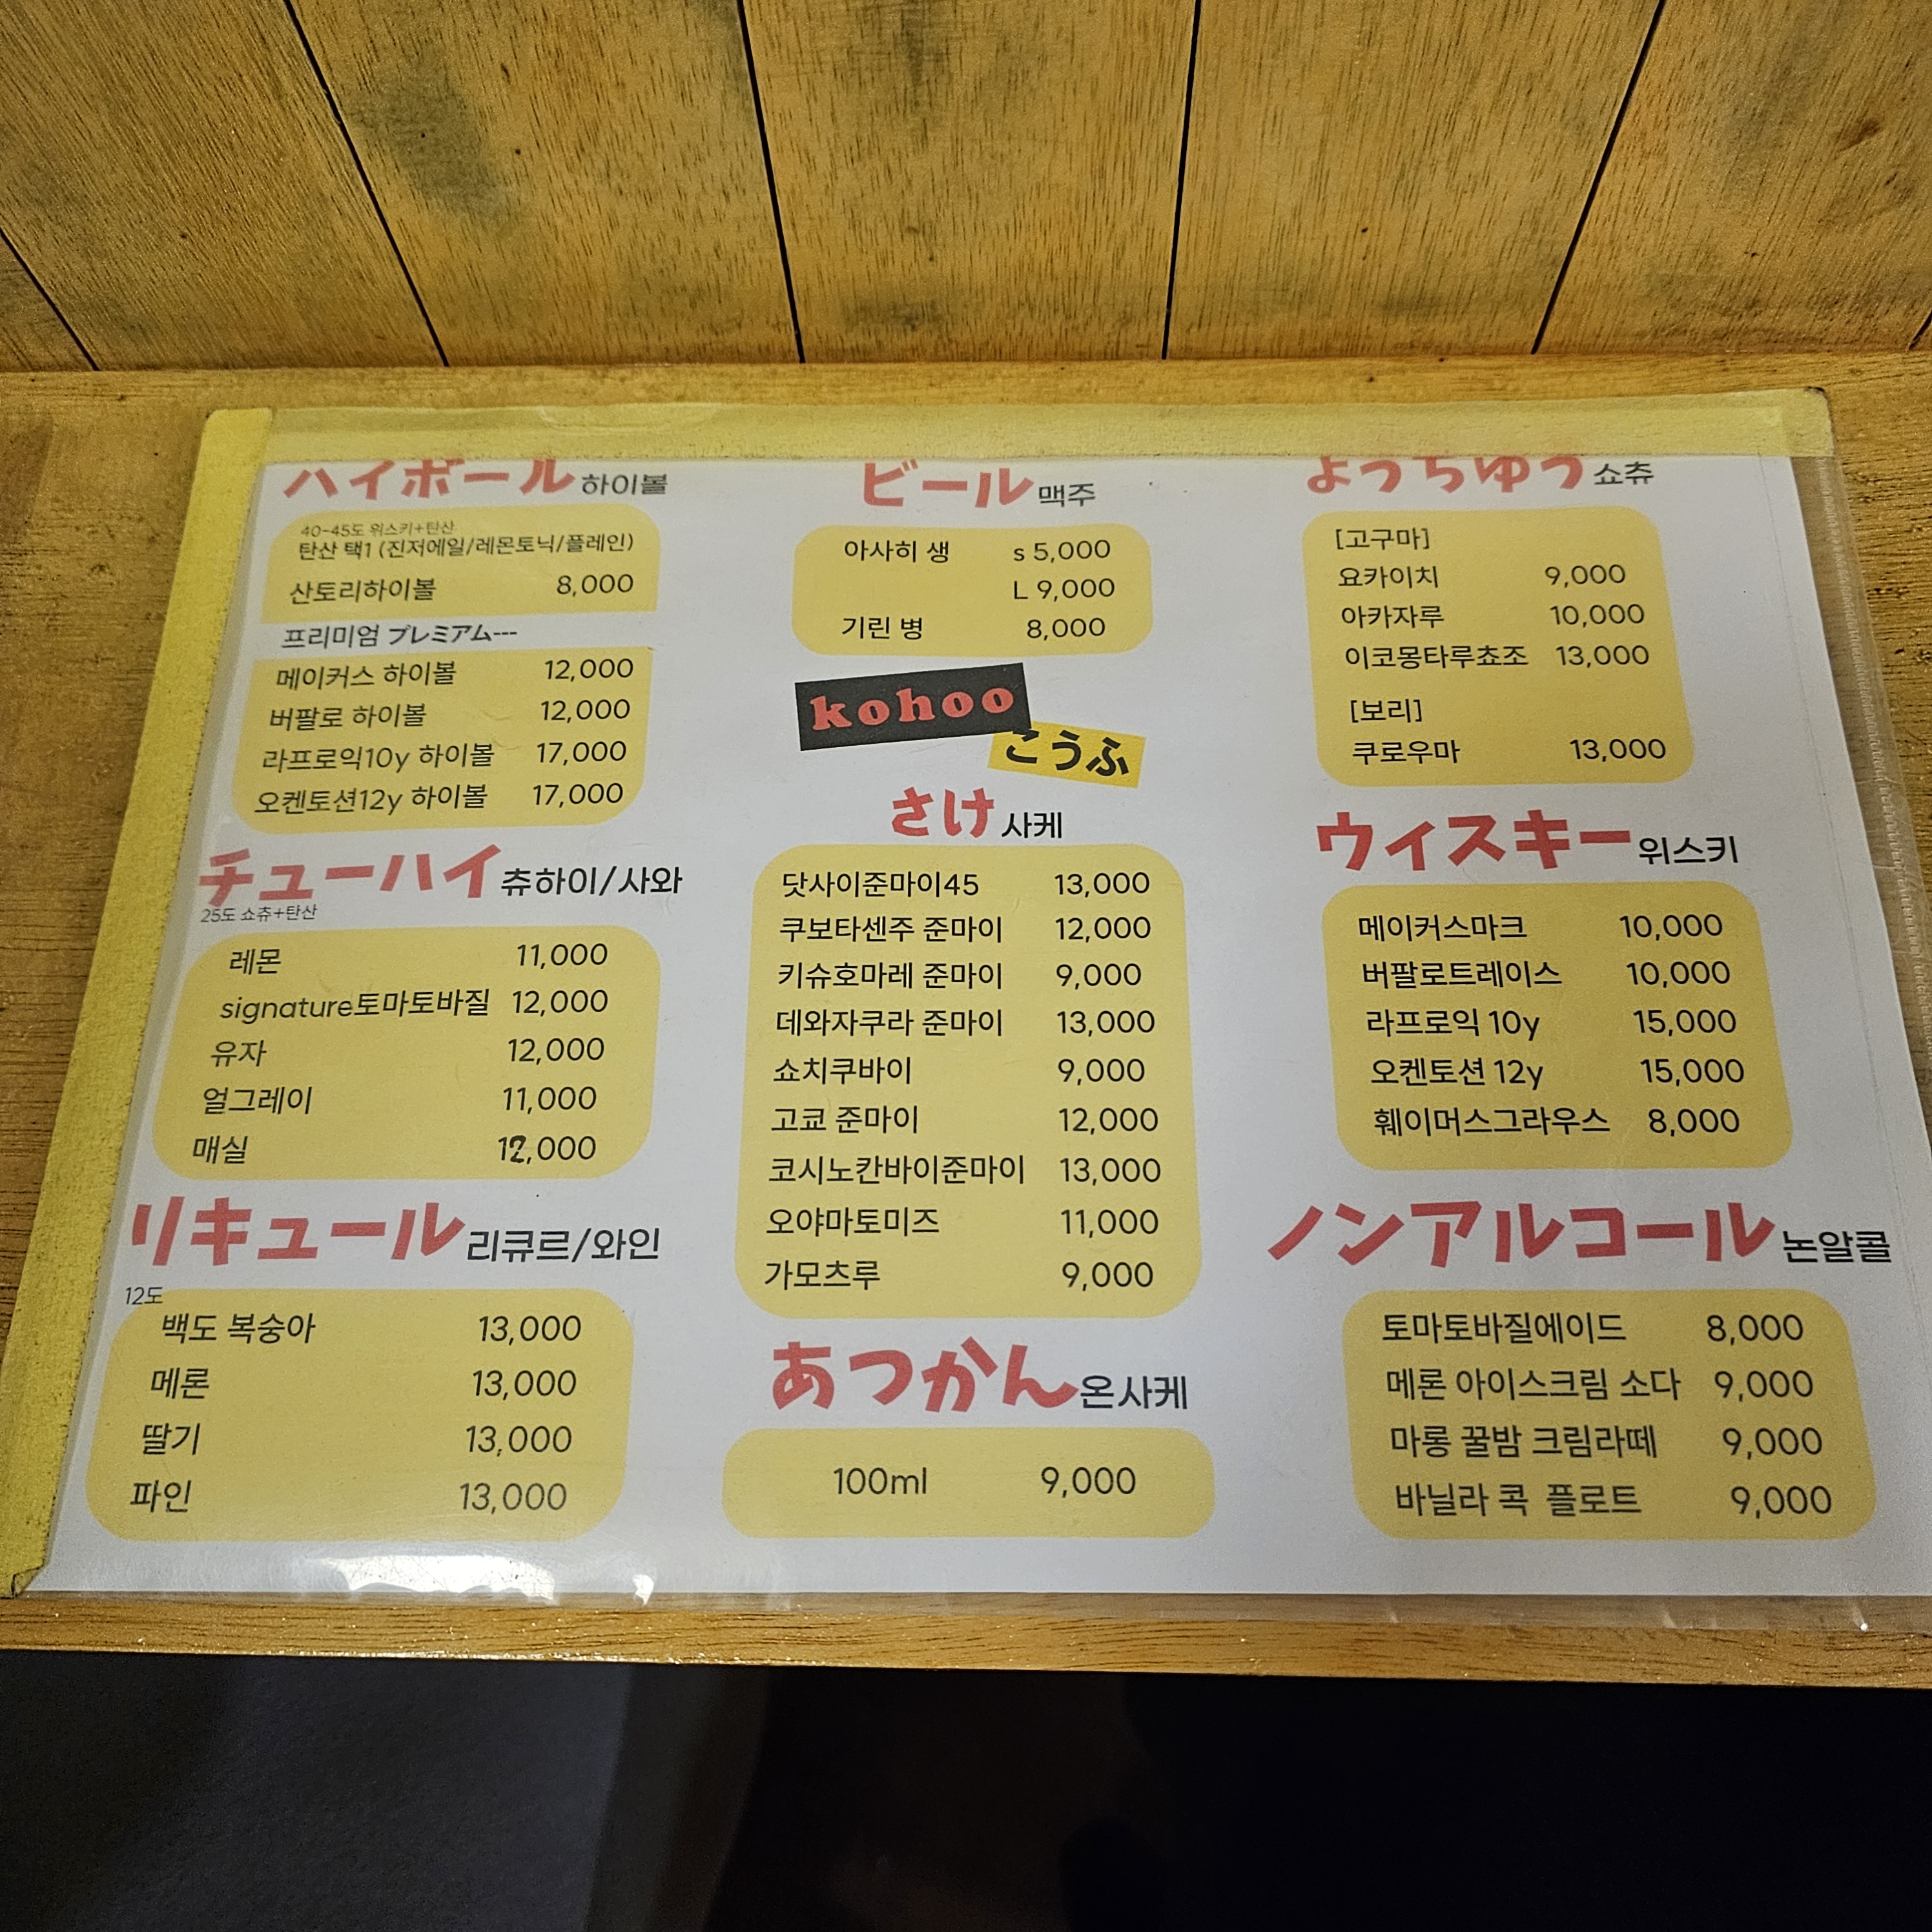 ハイボール 하이볼
40-45도 위스키+탄산
탄산 택1 (진저에일/레몬토닉/플레인)
산토리하이볼 8,000
프리미엄 プレミアム---
메이커스 하이볼 12,000
버팔로 하이볼 12,000
라프로익10y 하이볼 17,000
오켄토션12y 하이볼 17,000
チューハイ 츄하이/사와
25도 쇼츄+탄산
레몬 11,000
signature토마토바질 12,000
유자 12,000
얼그레이 11,000
매실 12,000
リキュール 리큐르/와인
12도
백도 복숭아 13,000
메론 13,000
딸기 13,000
파인 13,000
ビール 맥주
아사히 생 s 5,000
L 9,000
기린 병 8,000
kohoo
こうふ
さけ 사케
닷사이준마이45 13,000
쿠보타센주 준마이 12,000
키슈호마레 준마이 9,000
데와자쿠라 준마이 13,000
쇼치쿠바이 9,000
고쿄 준마이 12,000
코시노칸바이준마이 13,000
오야마토미즈 11,000
가모츠루 9,000
あつかん 온사케
100ml 9,000
ようちゆう 쇼츄
[고구마]
요카이치 9,000
아카자루 10,000
이코몽타루쵸조 13,000
[보리]
쿠로우마 13,000
ウィスキー 위스키
메이커스마크 10,000
버팔로트레이스 10,000
라프로익 10y 15,000
오켄토션 12y 15,000
훼이머스그라우스 8,000
ノンアルコール 논알콜
토마토바질에이드 8,000
메론 아이스크림 소다 9,000
마롱 꿀밤 크림라떼 9,000
바닐라 콕 플로트 9,000